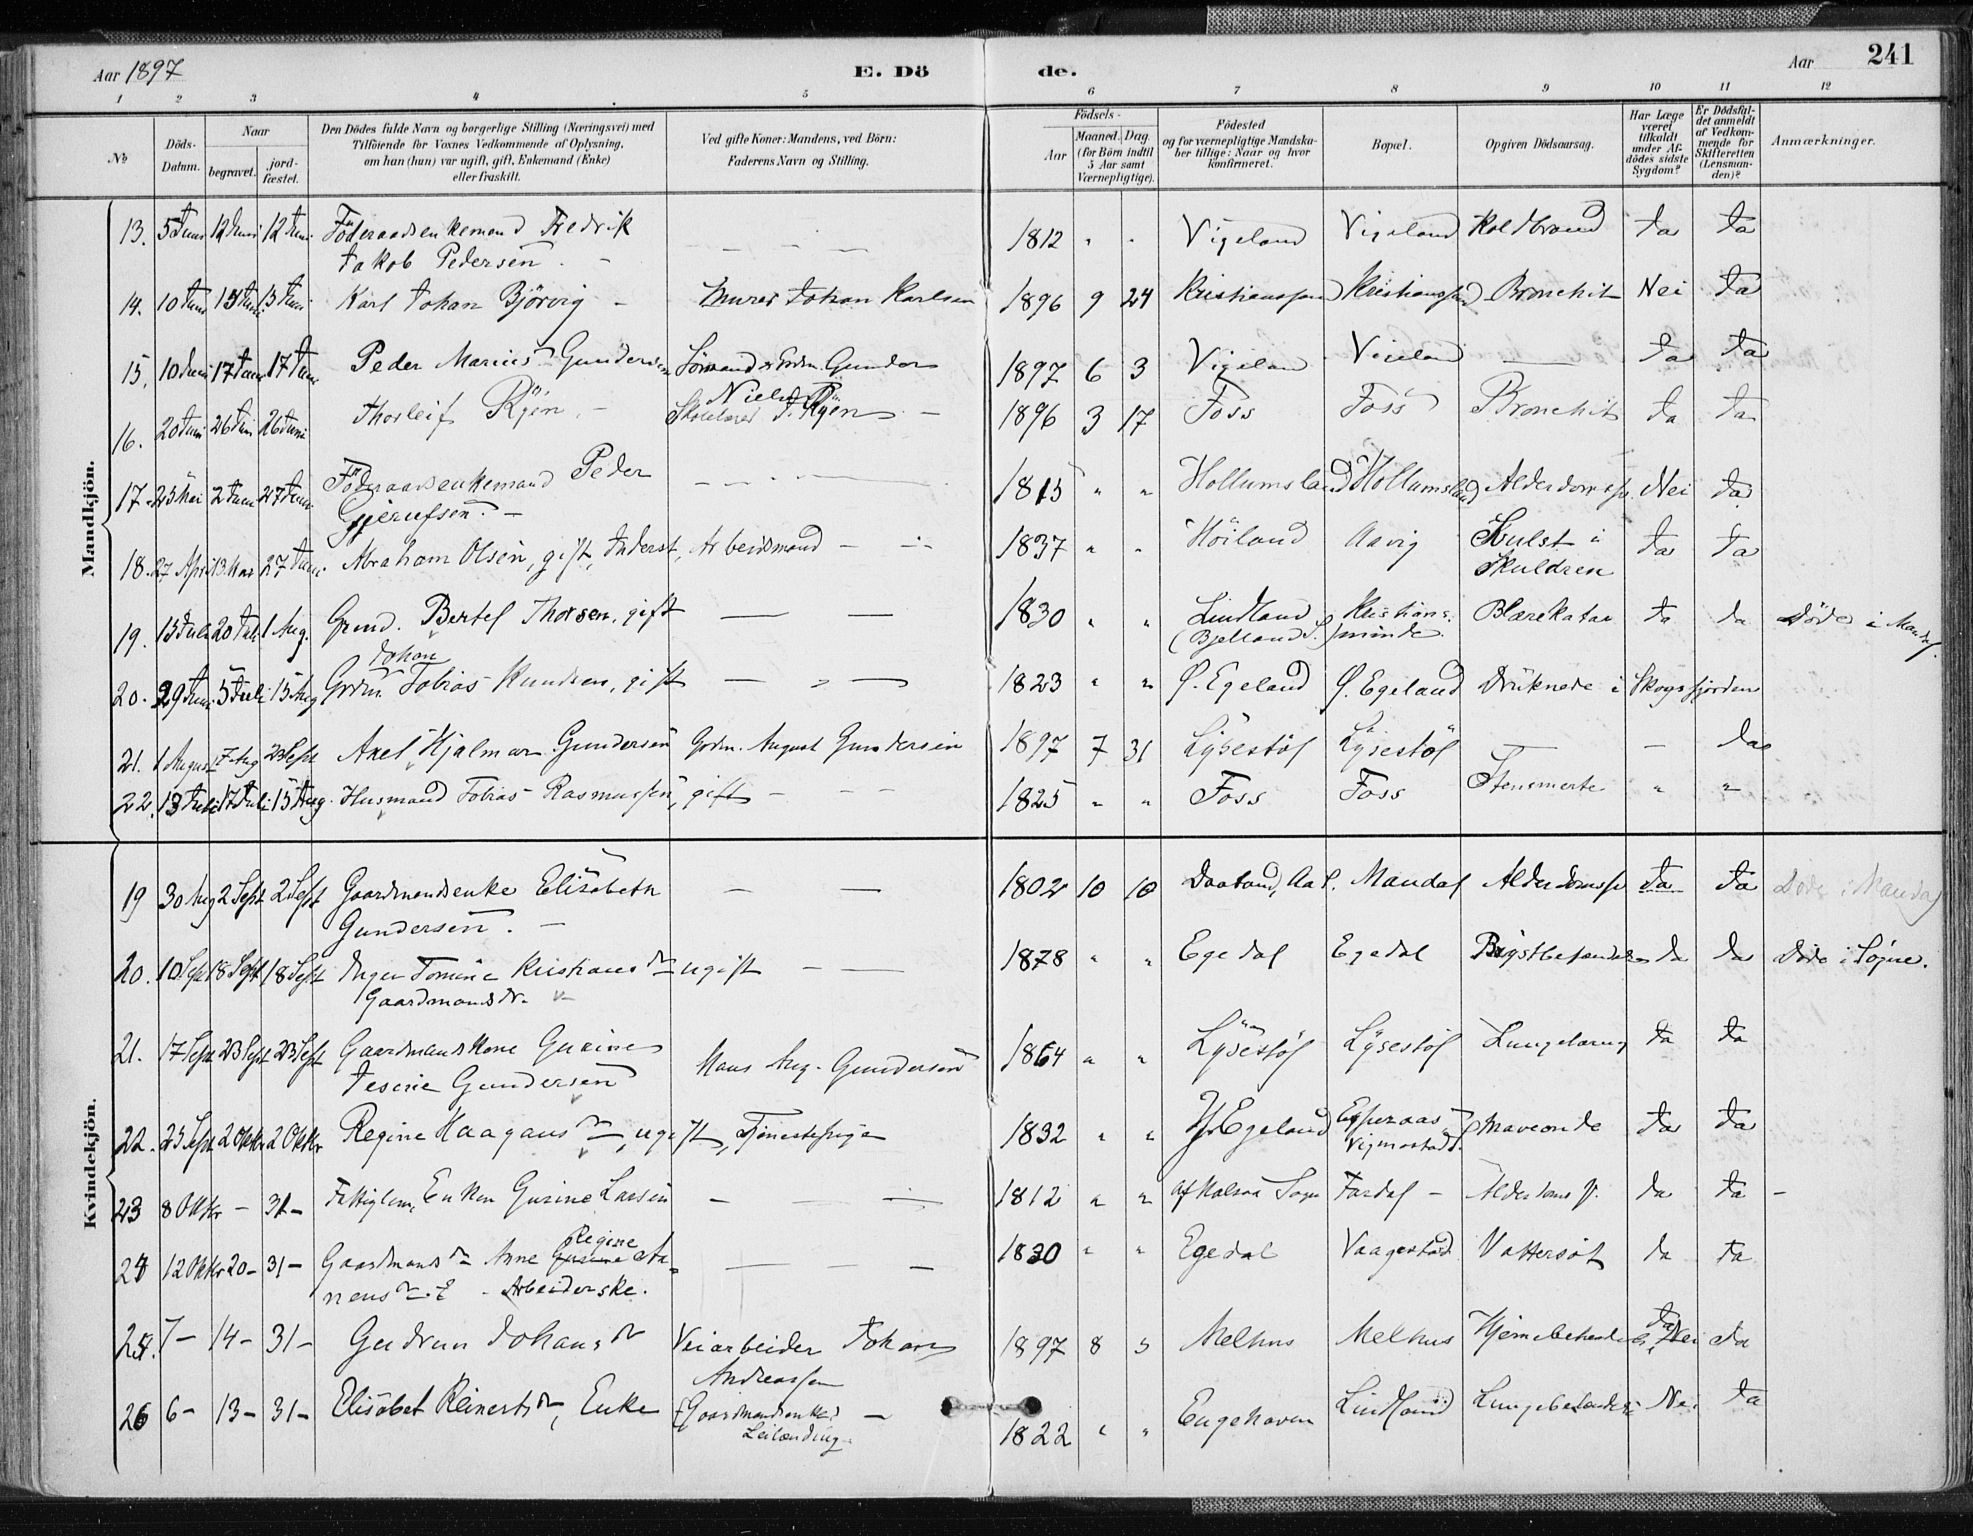 Aar 1897 E. Dö de. Aar 241
1 2 3 4 5 6 7 8 9 10 11 12
No Döds-Datum. Naar begravet. jordfæstet. Den Dödes fulde Navn og borgerlige Stilling (Næringsvei) med Tilföiende for Voxnes Vedkommende af Oplysning, om han (hun) var ugift, gift, Enkemand (Enke) eller fraskilt. Ved gifte Koner: Mandens, ved Börn: Faderens Navn og Stilling. Födsels- Aar Maaned. Dag. (for Börn indtil 5 Aar samt Værnepligtige). Födested og for værnepligtige Mandskaber tillige: Naar og hvor konfirmeret. Bopæl. Opgiven Dödsaarsag. Har Læge været tilkaldt under Afdödes sidste Sygdom? Er Dödsfaldet anmeldt af Vedkommende for Skifteretten (Lensmanden)? Anmærkninger.
Mandkjön.
13. 5 Juni 12 Juni 12 Juni Föderaadsenkemand Fredrik 1812 " " Vigeland Vigeland Koldbrand Ja Ja
Jakob Pedersen. -
14. 10 Juni 13 Juni 13 Juni Karl Johan Björvig - Murer Johan Karlsen 1896 9 24 Kristianssand Kristianssand Bronchit Nei Ja
15. 10 Juni 17 Juni 17 Juni Peder Marius Gundersen Sömand Gunder 1897 6 3 Vigeland Vigeland — Ja Ja
Nielsen
16. 20 Juni 26 Juni 26 Juni Thorleif Ryen. - Skolelærer T. Ryen - 1896 3 17 Foss Foss Bronchit Ja Ja
17. 23 Mai 2 Juni 27 Juni Föderaadsenkemand Peder 1815 " " Hollumsland Hollumsland Alderdomssv. Nei Ja
Gjerulfsen. -
18. 27 April 3 Mai 27 Juni Abraham Olsen, gift, Inderst, Arbeidsmand - 1837 " " Höiland Aavig Svulst i Ja Ja
Skuldren
19. 13 Juli 20 Juli 1 Aug. Grmd. Bertel Thorsen, gift — — 1830 " " Lindland Kristians- Blærekatar Ja Ja Döde i Mandal.
(Bjelland S.) minde.
20. 29 Juni 5 Juli 15 Aug Grdm. Johan Tobias Knudsen, gift — " — 1823 " " Ø. Egeland Ø. Egeland Druknede i Skogsfjorden
21. 1 August 7 Aug 23 Sept Axel Hjalmar Gundersen Grdm. August Gundersen 1897 7 31 Lysestöl Lysestöl — - Ja
22. 13 Juli 17 Juli 15 Aug. Husmand Tobias Rasmussen, gift - - - 1825 " " Foss Foss Stensmerte " "
Kvindekjön.
19 30 Aug 2 Sept 2 Sept Gaardmandsenke Elisabeth — — 1802 10 10 Mandal Alderdomssv. Ja Ja Döde i Mandal
Gundersen. -
20. 10 Sept 18 Sept 18 Sept Inger Tomine Kristiansdr ugift - — 1878 " " Egedal Egedal Brystbetændelse Ja Ja Döde i Sögne.
Gaardmandsdr.
21. 17 Sept 23 Sept 23 Sept Gaardmandskone Gurine Hans Aug. Gundersen 1864 " " Lysestöl Lysestöl Ja Ja
Jesine Gundersen
22. 25 Sept 2 Oktbr 2 Oktbr Regine Haagansdr, ugift, Tjenestepige 1832 " " Y. Egeland Maveonde Ja Ja
Vigmostad.
23 8 Oktbr - 31 - Fattiglem, Enken Gurine Larsen — — 1812 " " af Halsaa Sogn - Alderdoms sv. Ja Ja -
24 12 Oktbr 20 - 31 - Gaardmandsdr Anne Regine Aa- — — 1830 " " Egedal Vaagestad. Vattersot Ja Ja
nensdr. E - Arbeiderske.
25. 7 - 14 - 31 - Gudrun Johansdr Veiarbeider Johan 1897 8 5 Melhus Melhus Hjernebetændelse Ja, Nei Ja
Andreassen
26 6 - 13 - 31 - Elisabet Reinertsdr, Enke (Gaardmandsenke) — 1822 " " Engehaven Lindland Lungebetændelse Nei Ja
Leilænding